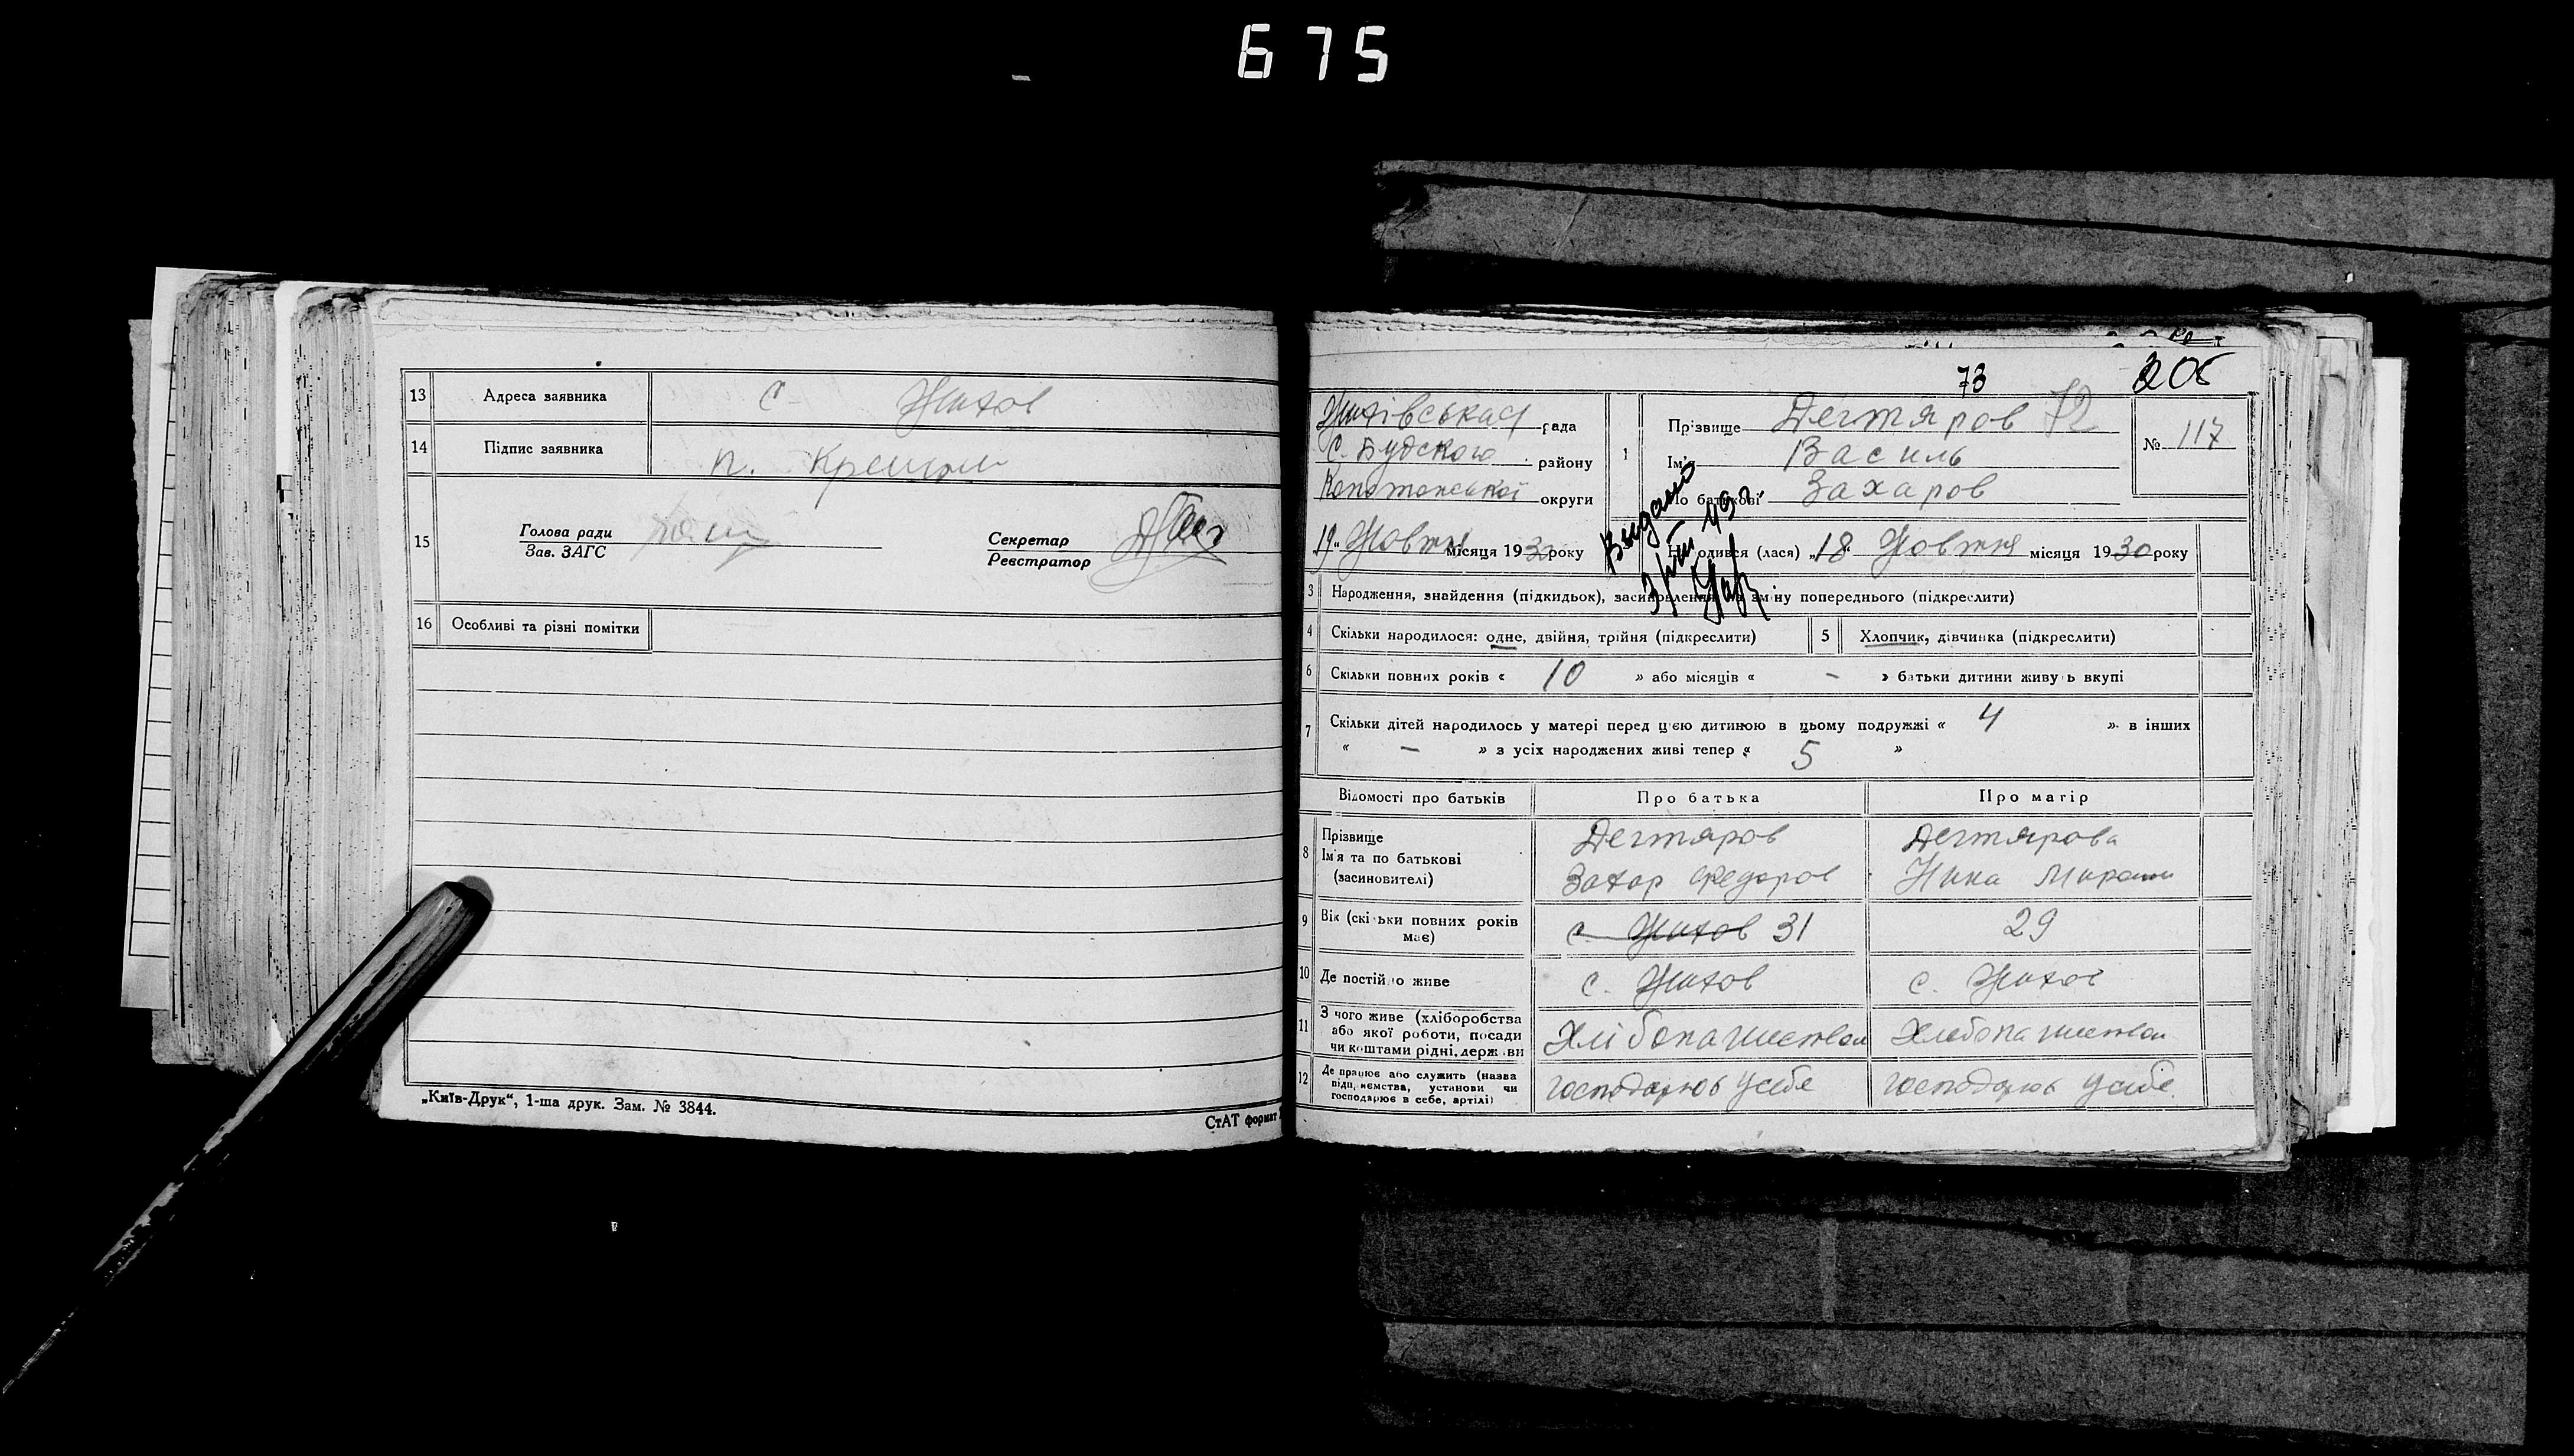 675
13 Адреса заявника С- Жихов
14 Підпис заявника п.
15 Голова ради
Зав. ЗАГС
Секретар
Реєстратор
16 Особливі та різні помітки
„Київ-Друк“, 1-ша друк. Зам. № 3844.
СтАТ формат
73 205
Жихівська рада
С. Будского району
Конотопської округи
1 Прізвище Дегтяров 72
Ім'я Василь
По батькові Захаров
№ 117
Видано
49 г.
19 „ Жовтня місяця 1930 року
Народився (лася) „18“ Жовтня місяця 1930 року
3 Народження, знайдення (підкидьок), засиновлення та зміну попереднього (підкреслити)
4 Скільки народилося: одне, двійня, трійня (підкреслити)
5 Хлопчик, дівчинка (підкреслити)
6 Скільки повних років « 10 » або місяців « – » батьки дитини живуть вкупі
7 Скільки дітей народилось у матері перед цією дитиною в цьому подружжі « 4 » в інших
« – » з усіх народжених живі тепер « 5 »
Відомості про батьків Про батька Про матір
8 Прізвище
Ім'я та по батькові
(засиновителі)
Дегтяров
Захар Федоров
Дегтярова
Нина
9 Вік (скільки повних років
має)
с. Жихов 31
29
10 Де постійно живе с. Жихов с. Жихов
11 З чого живе (хліборобства
або якої роботи, посади
чи коштами рідні, держави
Хлібопашеством
Хлебопашеством
12 Де працює або служить (назва
підприємства, установи чи
господарює в себе, артілі)
господарює усебе
господарює усебе.